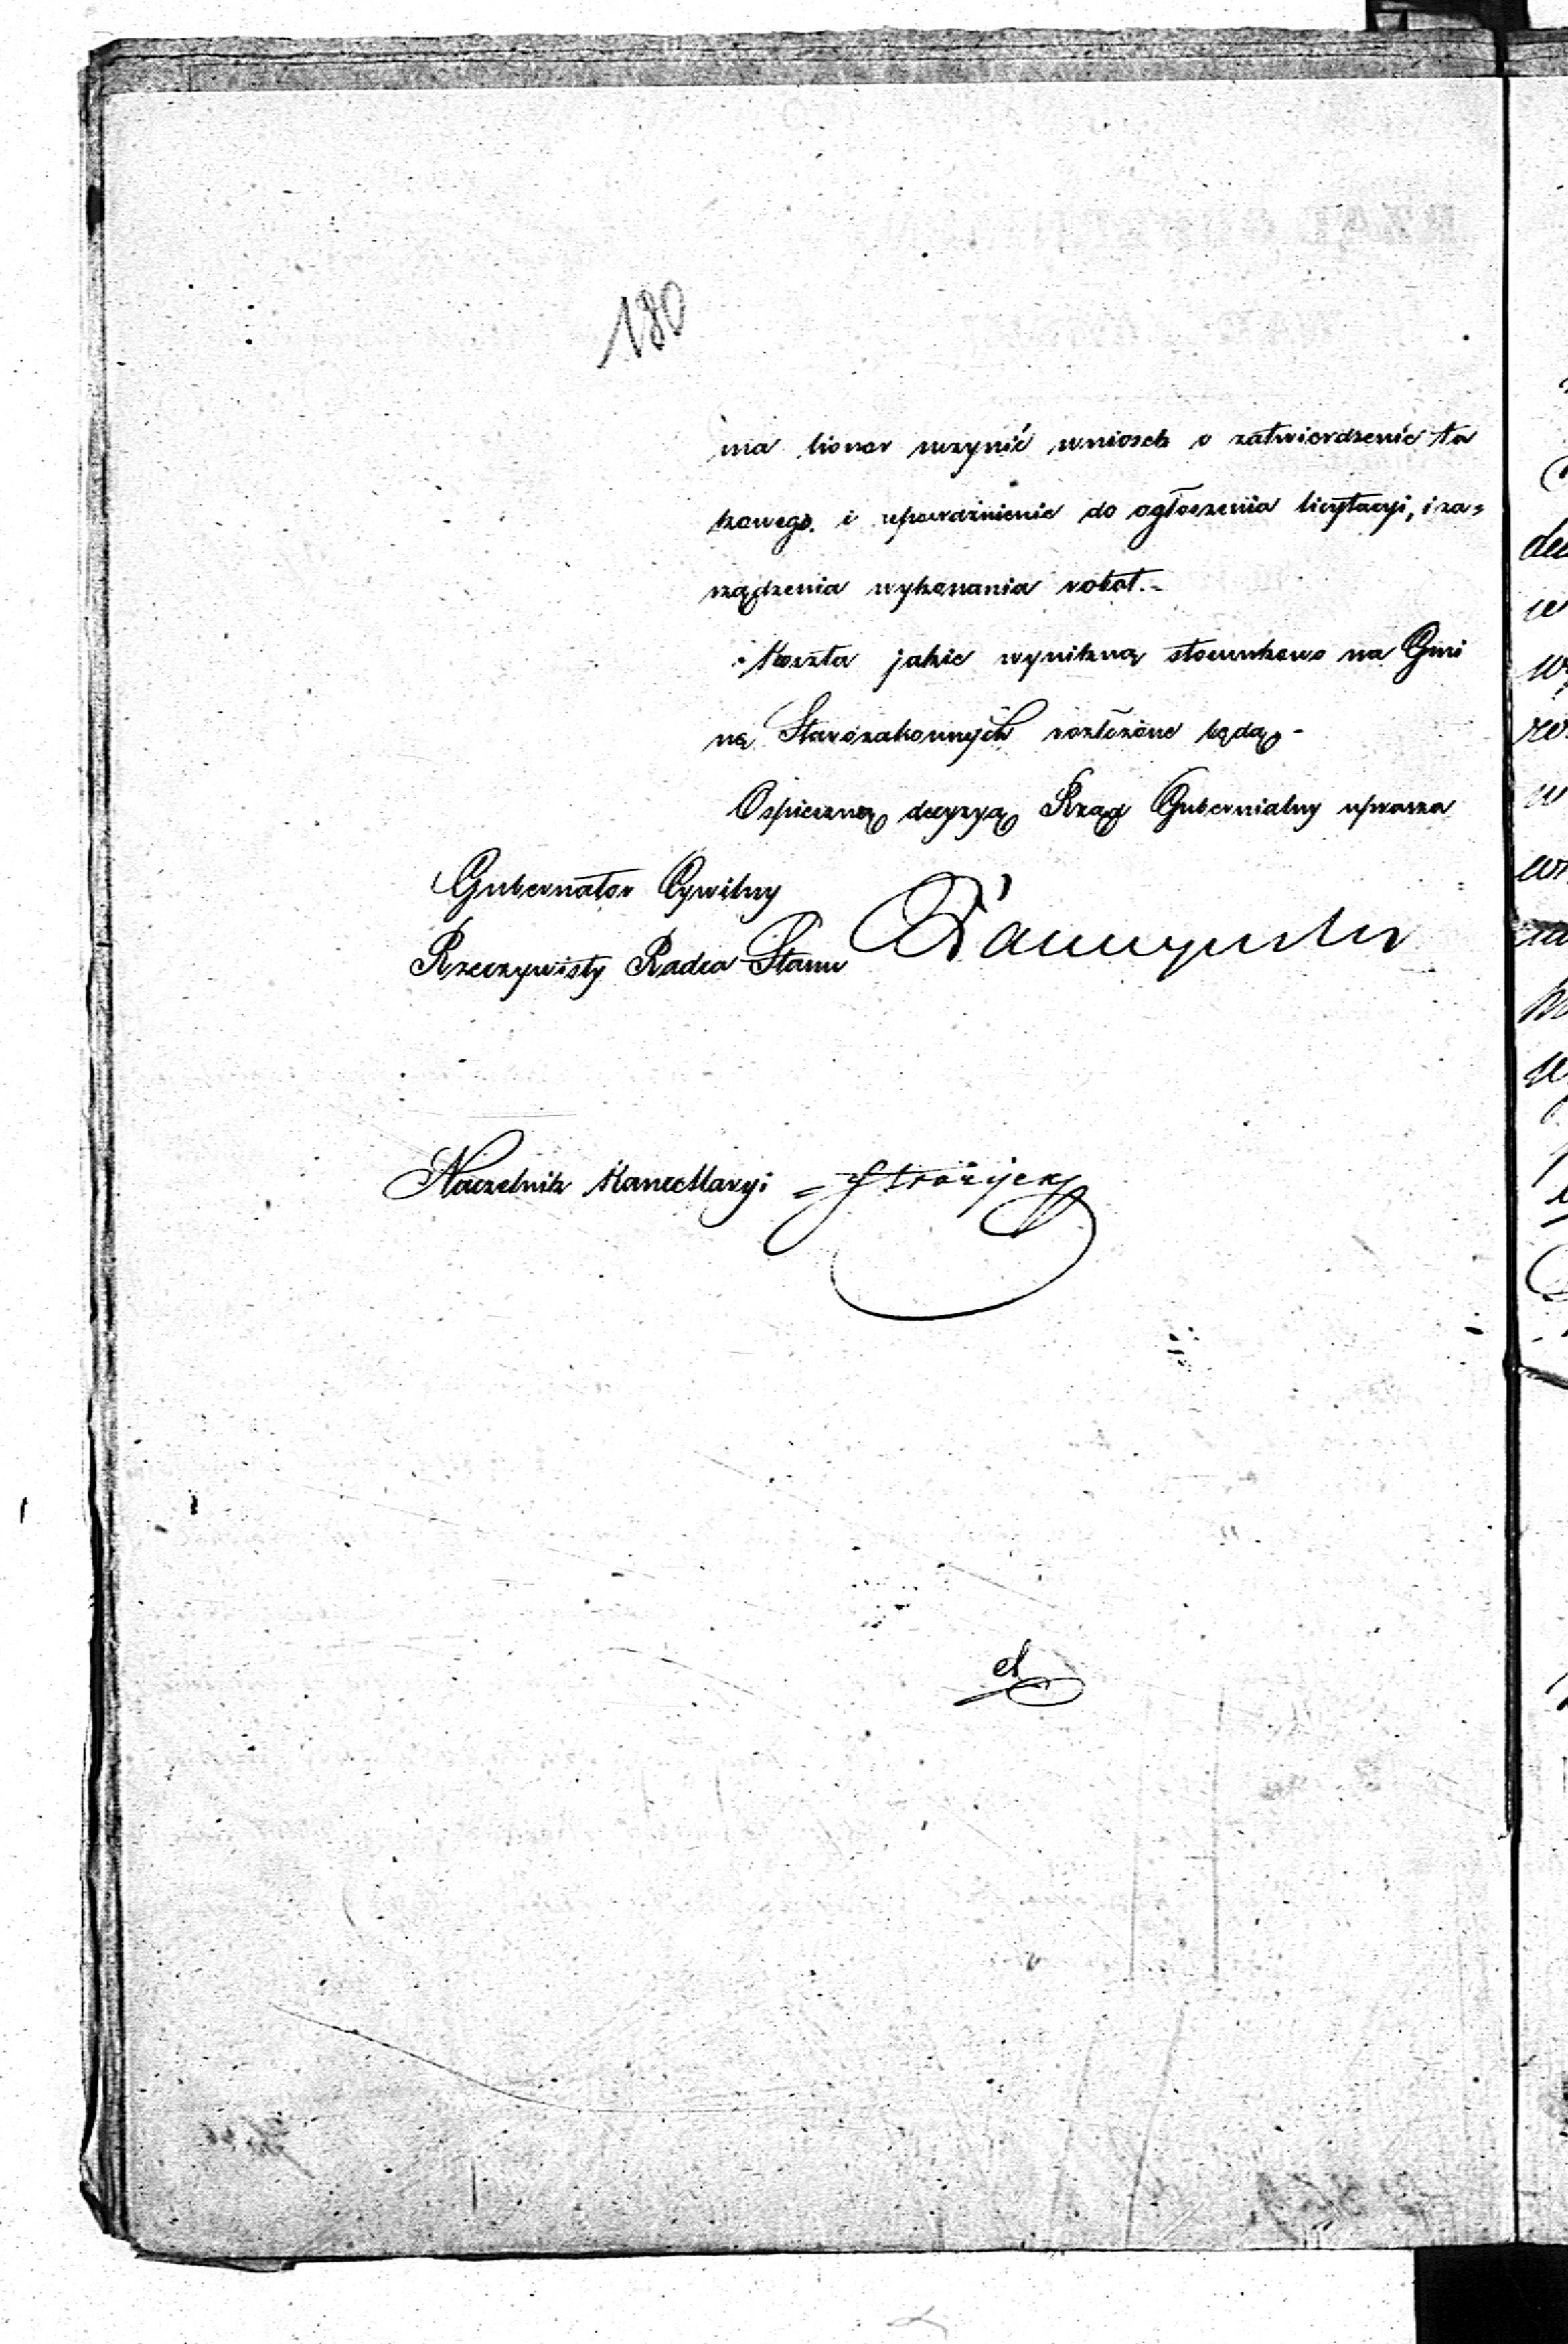 180
ma honor uczynić wniosek o zatwierdzenie ta
kowego. i upoważnienie do ogłoszenia licytacyi, i za=
rządzenia wykonania robot.-
Koszta jakie wynikną stosunkowo na Gmi
nę Starozakonnych rozłożone będą -
O spieszną decyzyą Rząd Gubernialny uprasza
Gubernator Cywilny
Rzeczywisty Radca Stanu
Naczelnik Kancellaryi